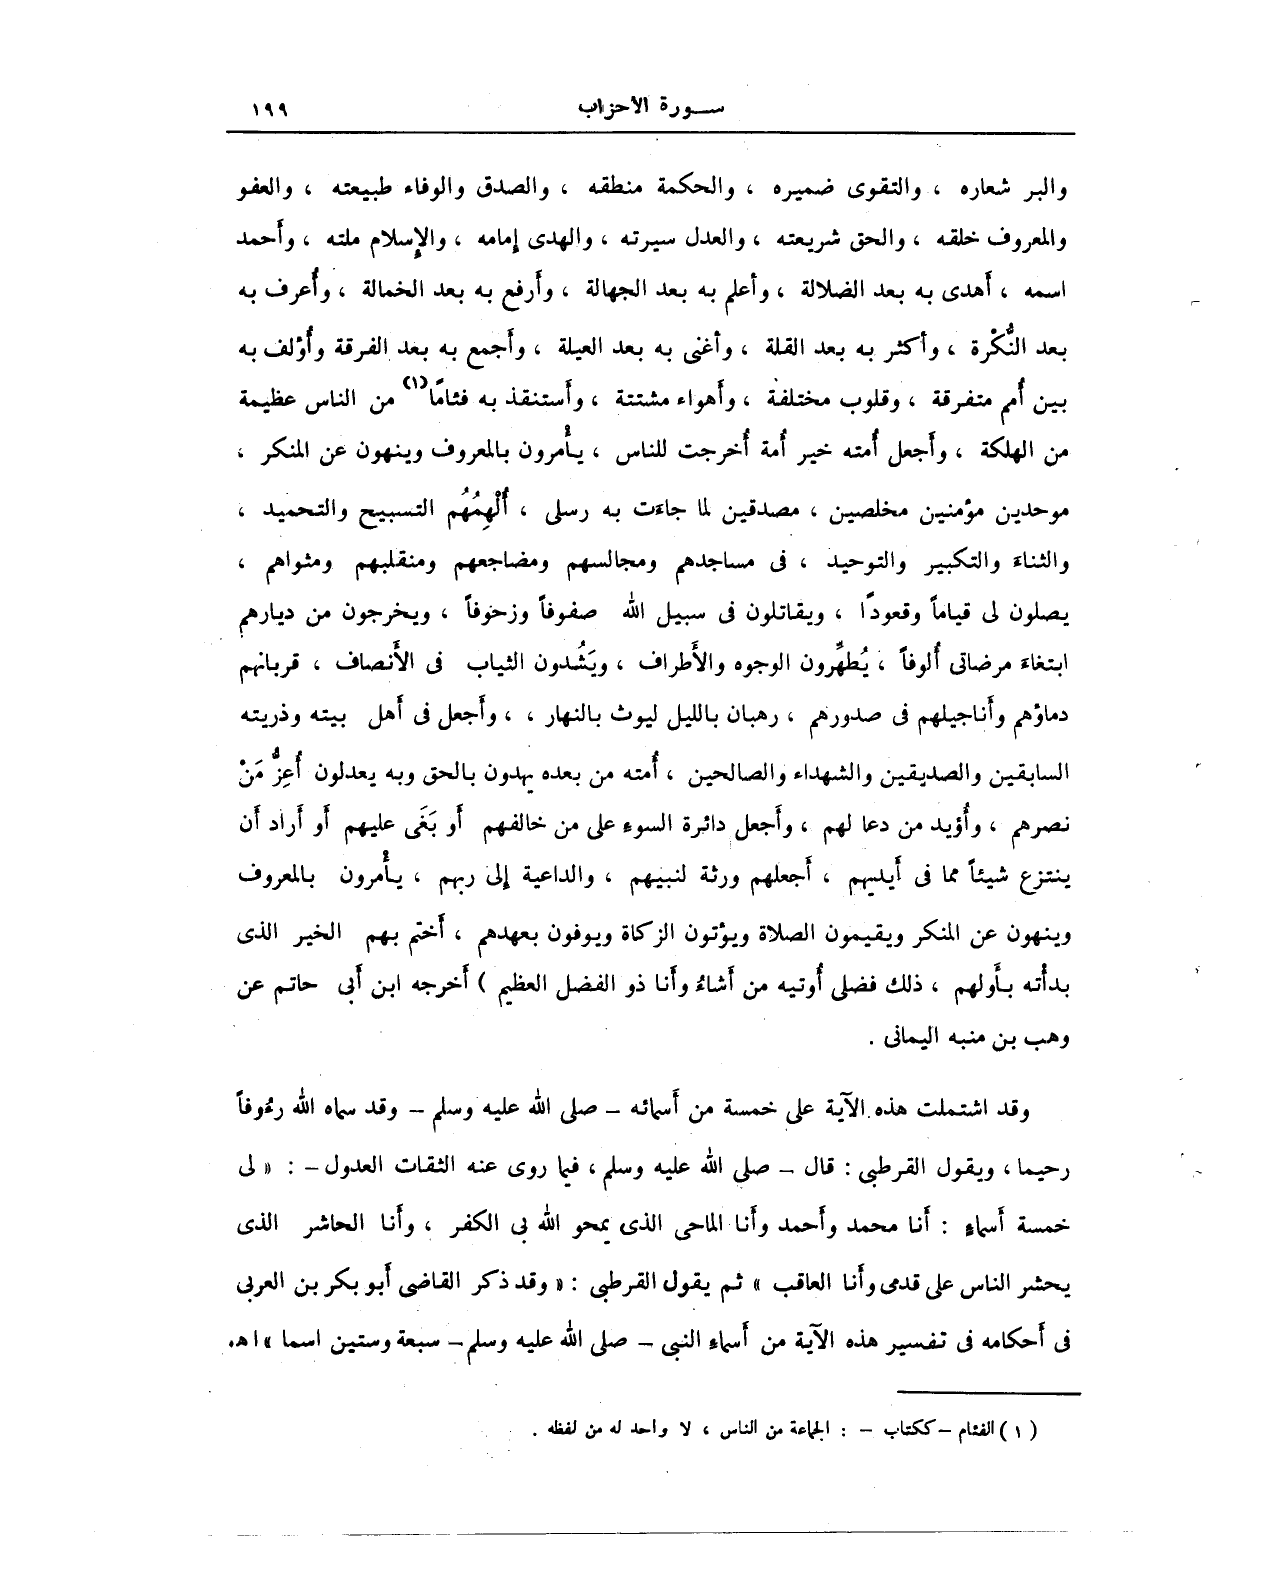 ســورة الأحزاب ١٩٩
والبر شعاره ، والتقوى ضميره ، والحكمة منطقه ، والصدق والوفاء طبيعته ، والعفو
والمعروف خلقه ، والحق شريعته ، والعدل سيرته ، والهدى إمامه ، والإسلام ملته ، وأحمد
اسمه ، أهدى به بعد الضلالة ، وأعلم به بعد الجهالة ، وأرفع به بعد الخمالة ، وأُعرف به
بعد النُّكْرة ، وأكثر به بعد القلة ، وأغنى به بعد العيلة ، وأجمع به بعد الفرقة وأُؤلف به
بين أُمم متفرقة ، وقلوب مختلفة ، وأهواء مشتتة ، وأستنقذ به فئامًا(١) من الناس عظيمة
من الهلكة ، وأجعل أُمته خير أُمة أُخرجت للناس ، يأْمرون بالمعروف وينهون عن المنكر ،
موحدين مؤمنين مخلصين ، مصدقين لما جاءت به رسلى ، أُلْهِمُهُم التسبيح والتحميد ،
والثناء والتكبير والتوحيد ، فى مساجدهم ومجالسهم ومضاجعهم ومنقلبهم ومثواهم ،
يصلون لى قياماً وقعودًا ، ويقاتلون فى سبيل الله صفوفاً وزحوفاً ، ويخرجون من ديارهم
ابتغاء مرضاتى أُلوفاً ، يُطهِّرون الوجوه والأَطراف ، ويَشُدون الثياب فى الأَنصاف ، قربانهم
دماؤهم وأناجيلهم فى صدورهم ، رهبان بالليل ليوث بالنهار ، ، وأجعل فى أهل بيته وذريته
السابقين والصديقين والشهداء والصالحين ، أُمته من بعده يهدون بالحق وبه يعدلون أُعِزُّ مَنْ
نصرهم ، وأُؤيد من دعا لهم ، وأجعل دائرة السوء على من خالفهم أَو بَغَى عليهم أو أراد أن
ينتزع شيئاً مما فى أيديهم ، أجعلهم ورثة لنبيهم ، والداعية إلى ربهم ، يأْمرون بالمعروف
وينهون عن المنكر ويقيمون الصلاة ويؤتون الزكاة ويوفون بعهدهم ، أختم بهم الخير الذى
بدأته بأولهم ، ذلك فضلى أُوتيه من أشاءُ وأنا ذو الفضل العظيم ) أخرجه ابن أبى حاتم عن
وهب بن منبه اليمانى .
وقد اشتملت هذه الآية على خمسة من أسمائه – صلى الله عليه وسلم – وقد سماه الله رءُوفاً
رحيما ، ويقول القرطبى : قال – صلى الله عليه وسلم ، فيما روى عنه الثقات العدول – : « لى
خمسة أسماء : أنا محمد وأحمد وأنا الماحى الذى يمحو الله بى الكفر ، وأنا الحاشر الذى
يحشر الناس على قدمى وأنا العاقب » ثم يقول القرطبى : « وقد ذكر القاضى أبو بكر بن العربى
فى أحكامه فى تفسير هذه الآية من أسماء النبى – صلى الله عليه وسلم – سبعة وستين اسما » ا هـ.
( ١ ) الفئام – ككتاب – : الجماعة من الناس ، لا واحد له من لفظه .